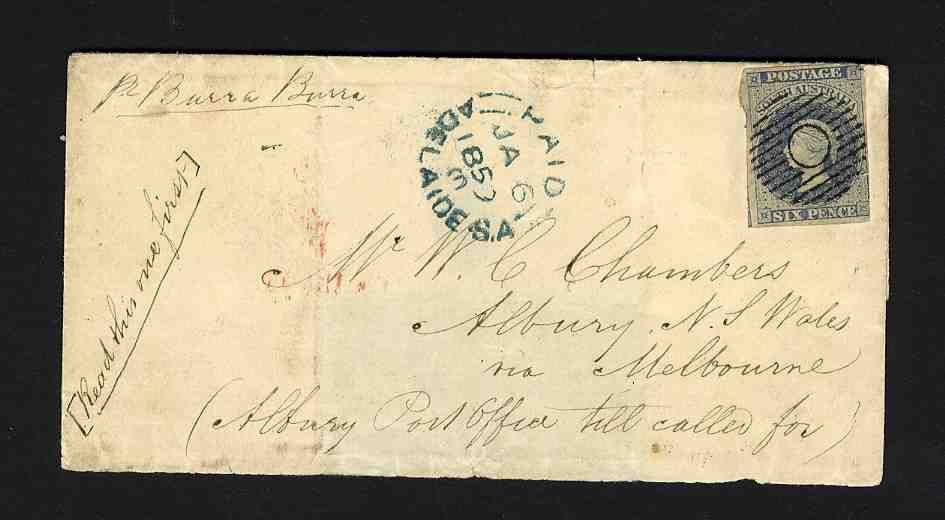 Pr Burra Burra
[Read this one first]
PAID
ADELAIDE S.A
JA 6
185
POSTAGE
SOUTH AUSTRALIA
SIX PENCE
Mr W. C Chambers
Albury. N. S Wales
via Melbourne
(Albury Post Office till called for)